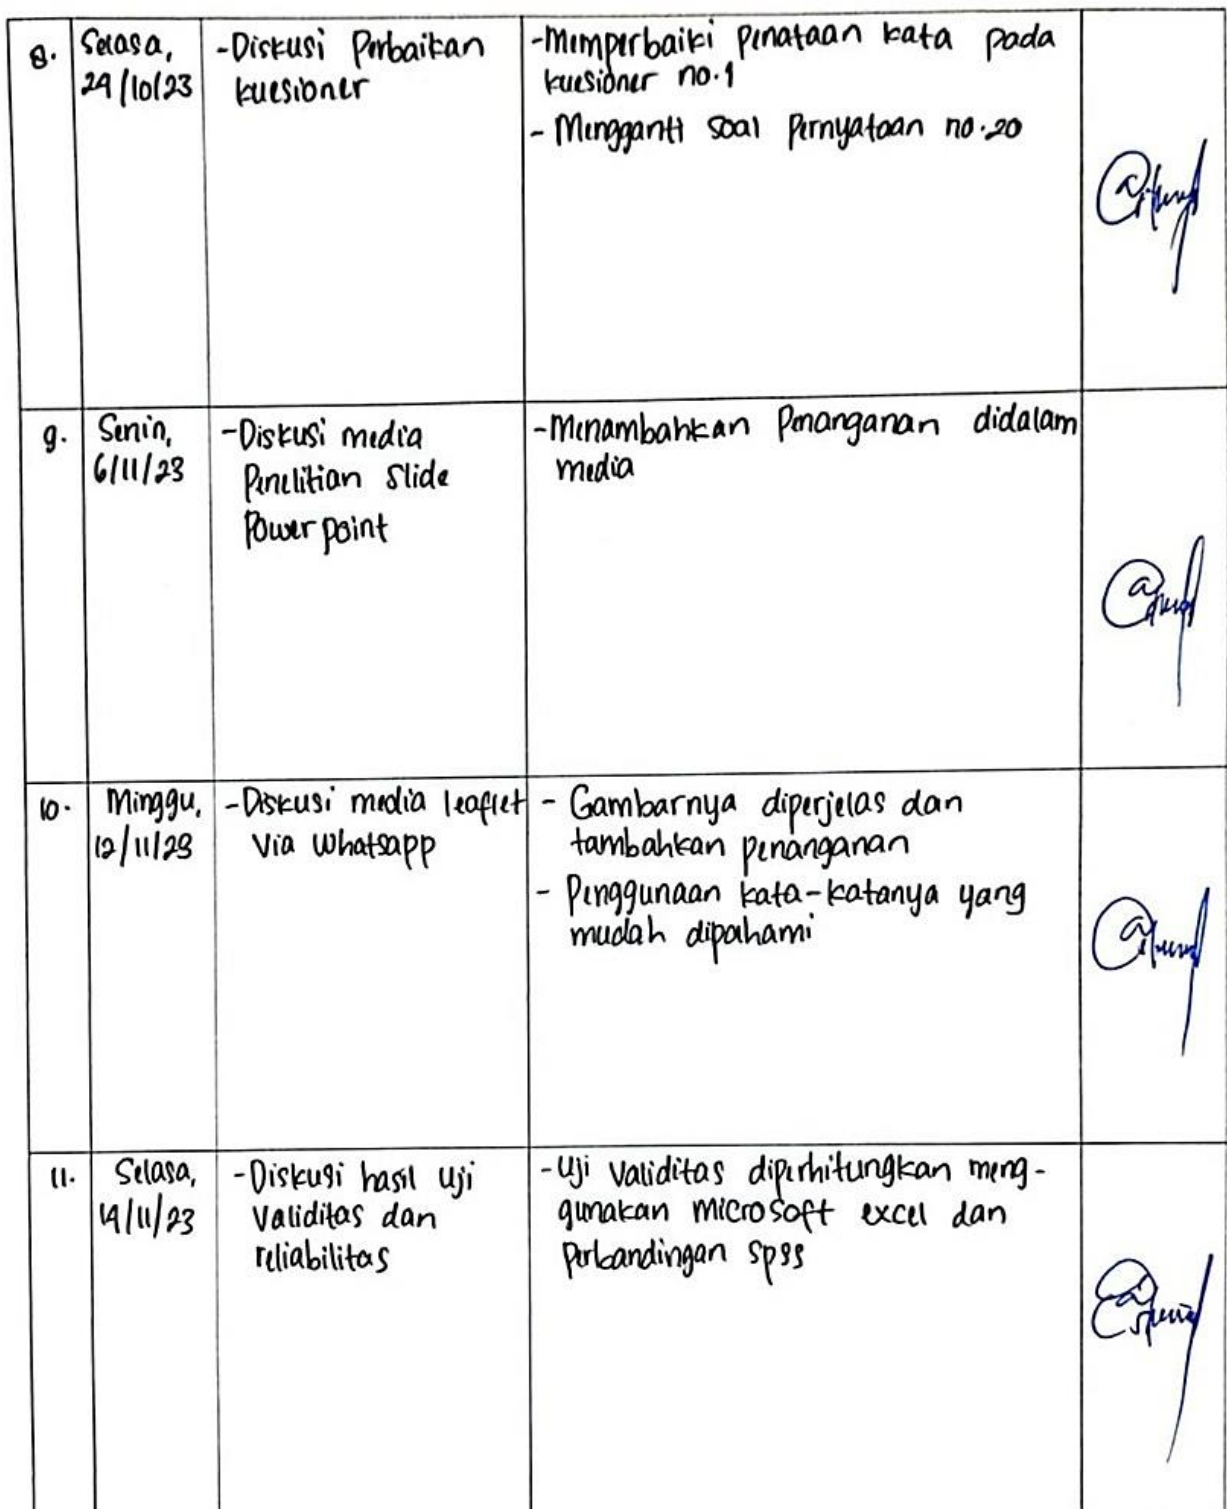 8.
Selasa,
24/10/23
-Diskusi Perbaikan
kuesioner
-Memperbaiki penataan kata pada
kuesioner no.1
- Mengganti soal Pernyataan no.20
9.
Senin,
6/11/23
-Diskusi media
Penelitian Slide
Power point
-Menambahkan Penanganan didalam
media
10.
Minggu,
12/11/23
-Diskusi media leaflet
Via Whatsapp
- Gambarnya diperjelas dan
tambahkan penanganan
- Penggunaan kata-katanya yang
mudah dipahami
11.
Selasa,
14/11/23
-Diskusi hasil Uji
Validitas dan
reliabilitas
-Uji Validitas diperhitungkan meng-
gunakan microsoft excel dan
Perbandingan spss